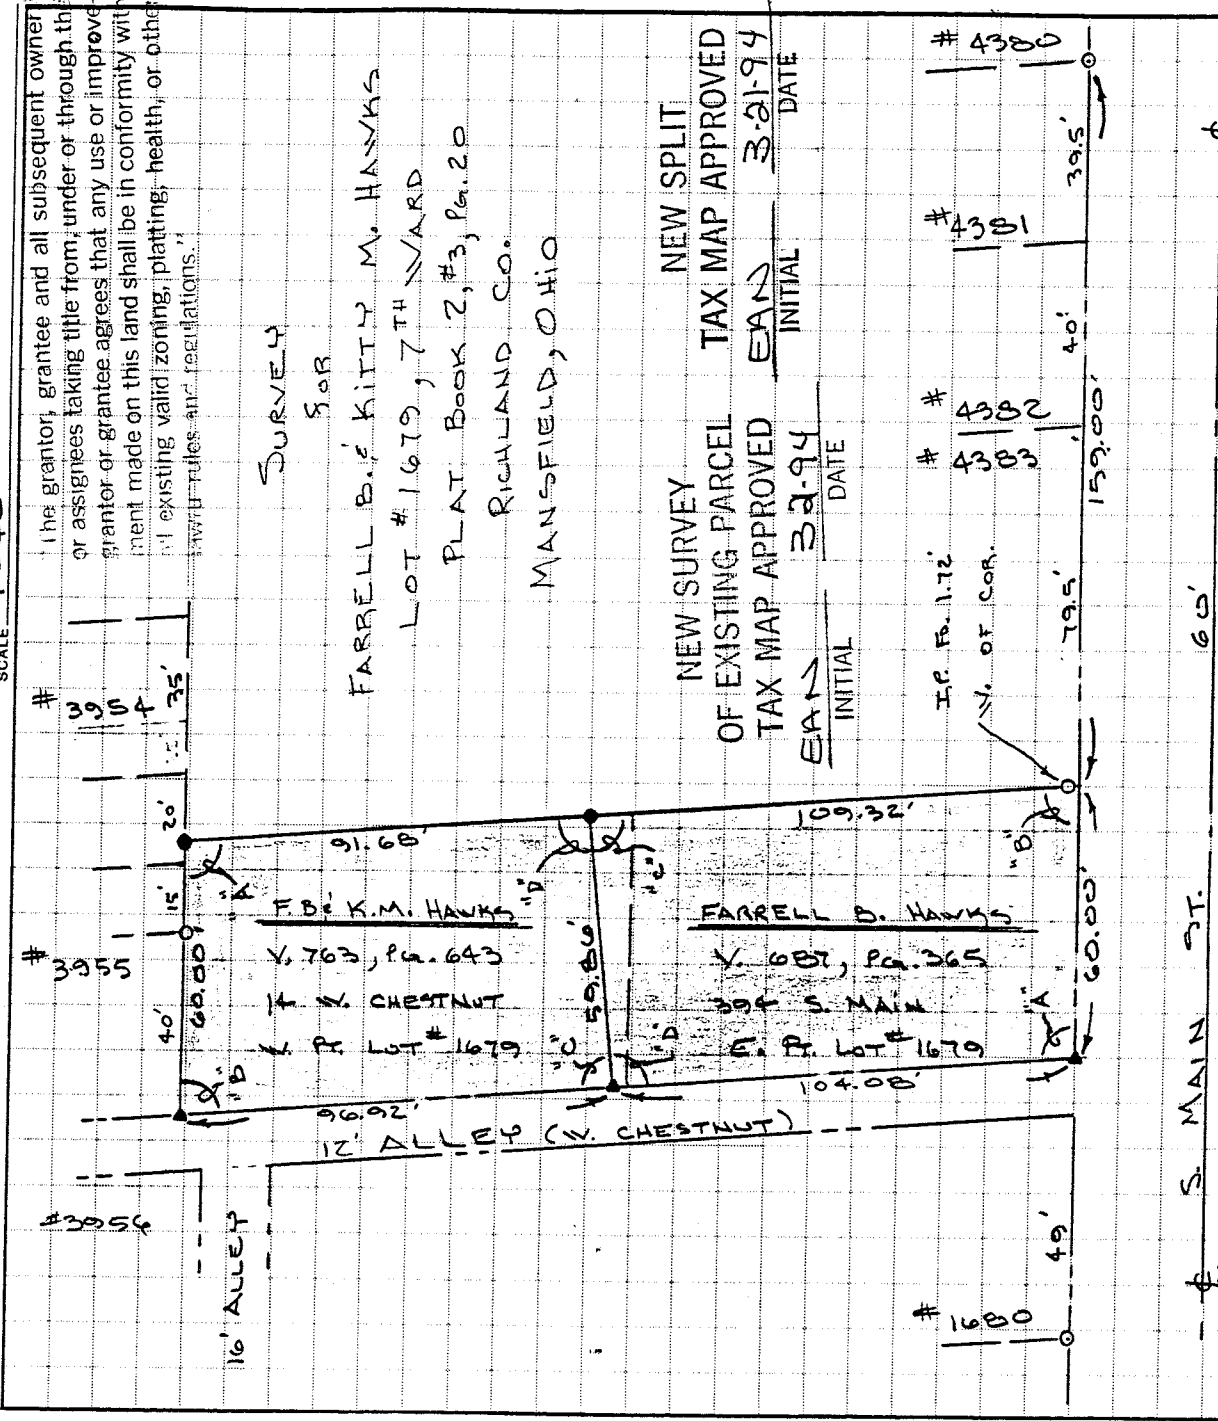 The grantor, grantee and all subsequent owner
or assignees taking title from, under or through the
grantor or grantee agrees that any use or improve-
ment made on this land shall be in conformity with
existing valid zoning, platting, health, or othe
rules and regulations."
SCALE
SURVEY
FOR
FARRELL B. & KITTY M. HAWKS
LOT #1679, 7TH WARD
PLAT BOOK 2, #3, PG. 20
RICHLAND CO.
MANSFIELD, OHIO
NEW SPLIT
TAX MAP APPROVED
EAN 3-21-94
INITIAL DATE
NEW SURVEY
OF EXISTING PARCEL
TAX MAP APPROVED
EAN 3-21-94
INITIAL DATE
# 4380
# 4381
# 4382
# 4383
39.5'
40'
159.00'
79.5'
I.P. FD. 1.72'
W. OF COR.
# 3954
35'
20'
15'
# 3955
40'
60.00'
#3956
16' ALLEY
91.68'
109.32'
"A"
"B"
"D"
"C"
F.B. & K.M. HAWKS
V. 763, PG. 643
14 W. CHESTNUT
W. PT. LOT #1679
59.86'
FARRELL B. HAWKS
V. 687, PG. 365
394 S. MAIN
E. PT. LOT #1679
"B"
"C"
"D"
"A"
60.00'
96.92'
104.08'
12' ALLEY (W. CHESTNUT)
# 1680
49'
S. MAIN ST.
60'